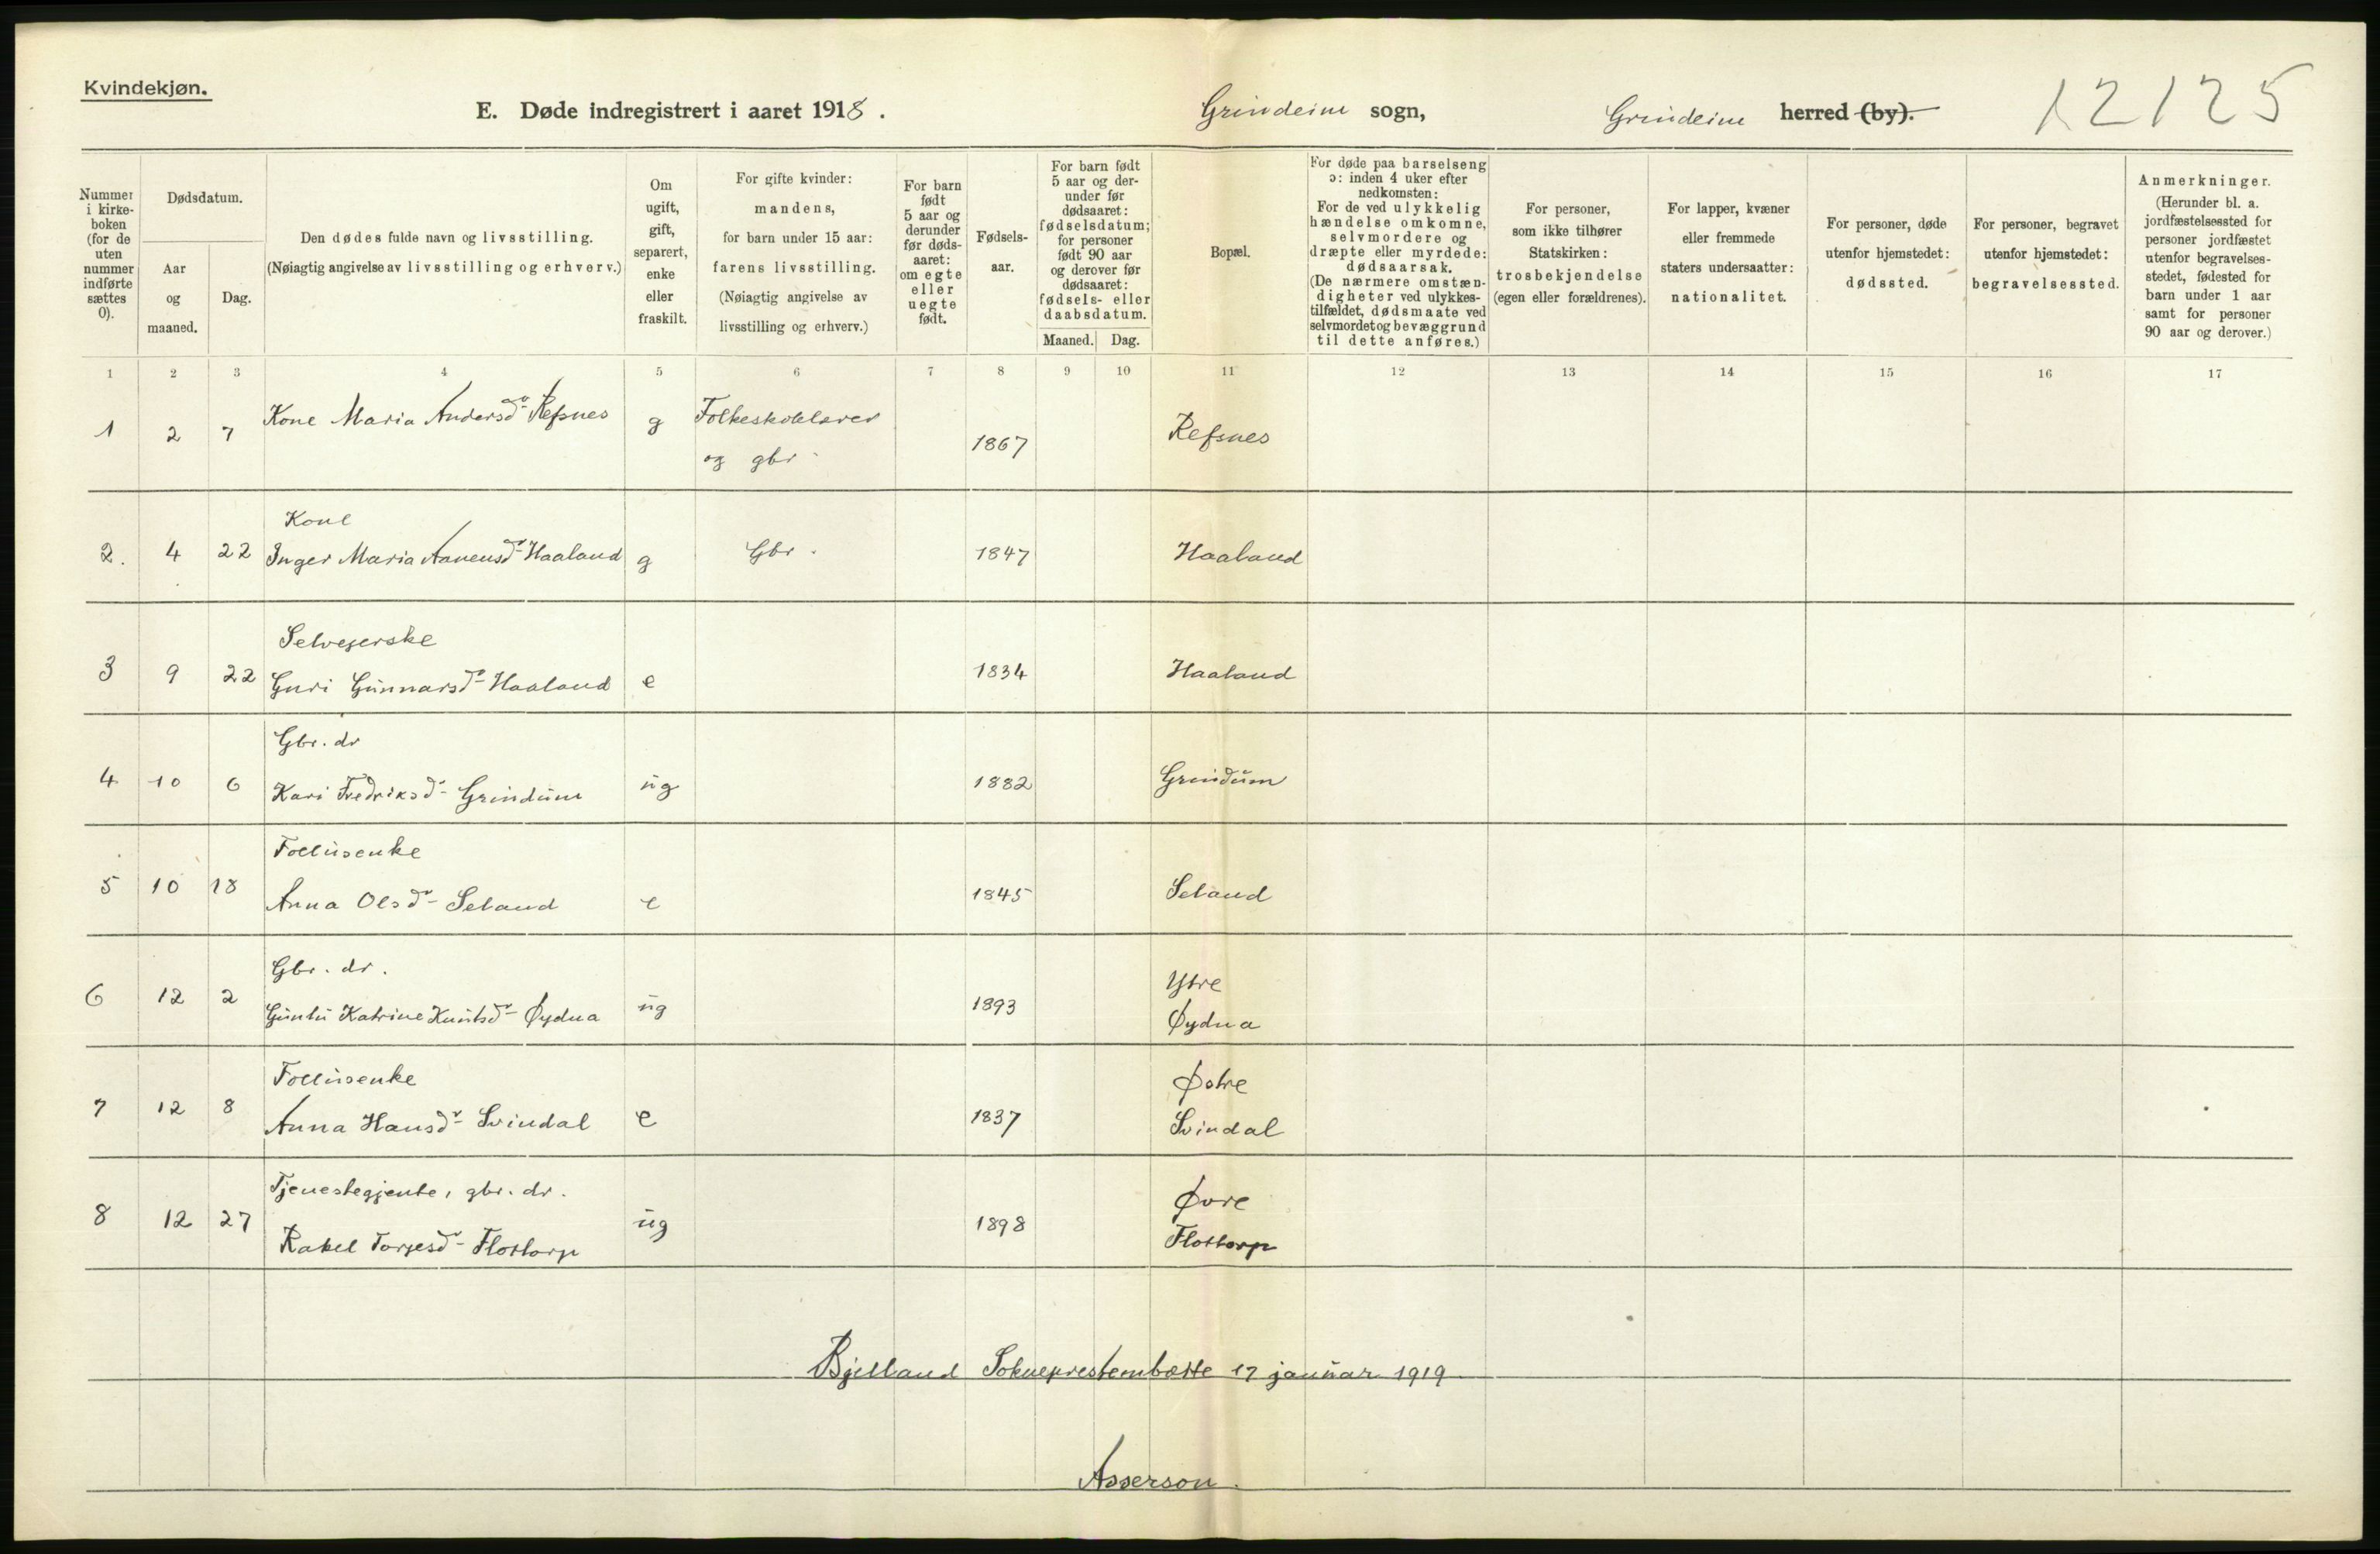 Kvindekjøn.
E. Døde indregistrert i aaret 1918.
Grindeim sogn,
Grindeim herred (by).
12125
Nummer i kirke-boken (for de uten nummer indførte sættes 0).
Dødsdatum.
Aar og maaned.
Dag.
Den dødes fulde navn og livsstilling.
(Nøiagtig angivelse av livsstilling og erhverv.)
Om ugift, gift, separert, enke eller fraskilt.
For gifte kvinder: mandens, for barn under 15 aar: farens livsstilling. (Nøiagtig angivelse av livsstilling og erhverv.)
For barn født 5 aar og derunder før døds-aaret: om egte eller uegte født.
Fødsels-aar.
For barn født 5 aar og der-under før dødsaaret: fødselsdatum; for personer født 90 aar og derover før dødsaaret: fødsels- eller daabsdatum.
Maaned.
Dag.
Bopæl.
For døde paa barselseng ɔ: inden 4 uker efter nedkomsten: For de ved ulykkelig hændelse omkomne, selvmordere og dræpte eller myrdede: dødsaarsak. (De nærmere omstæn-digheter ved ulykkes-tilfældet, dødsmaate ved selvmordet og bevæggrund til dette anføres.)
For personer, som ikke tilhører Statskirken: trosbekjendelse (egen eller forældrenes).
For lapper, kvæner eller fremmede staters undersaatter: nationalitet.
For personer, døde utenfor hjemstedet: dødssted.
For personer, begravet utenfor hjemstedet: begravelsessted.
Anmerkninger. (Herunder bl. a. jordfæstelsessted for personer jordfæstet utenfor begravelses-stedet, fødested for barn under 1 aar samt for personer 90 aar og derover.)
1 2 3 4 5 6 7 8 9 10 11 12 13 14 15 16 17
1 2 7 Kone Maria Andersdr Refsnes g Folkeskolelærer 1867 Refsnes
og gbr.
Kone
2. 4 22 Inger Maria Aanensdr Haaland g Gbr. 1847 Haaland
Selvejerske
3 9 22 Guri Gunnarsdr Haaland e 1834 Haaland
Gbr. dr
4 10 6 Kari Fredriksdr Grindum ug 1882 Grindum
Follusenke
5 10 18 Anna Olsdr Seland e 1845 Seland
Gbr. dr. Ytre
6 12 2 Guntu Katrine Knutsdr Øydna ug 1893 Øydna
Follusenke Østre
7 12 8 Anna Hansdr Svindal e 1837 Svindal
Tjenestegjente, gbr. dr. Øvre
8 12 27 Rakel Torjesdr Flottorp ug 1898 Flottorp
Bjelland Sokneprestembætte 17 januar 1919
Asserson.